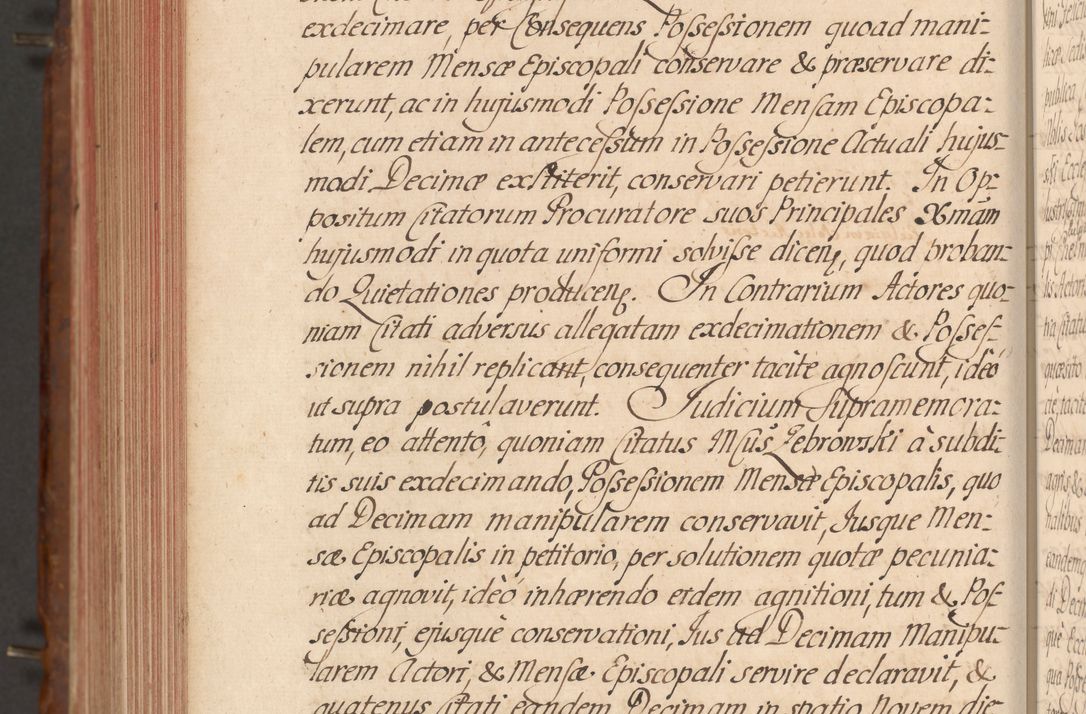 exdecimare, per Consequens Possessionem quoad mani-
pularem Mensæ Episcopali conservare & præservare di-
xerunt, ac in hujusmodi Possessione Mensam Episcopa-
lem, cum etiam in antecessum in Possessione Actuali hujus-
modi Decimæ exstiterit, conservari petierunt. In Op-
positum Citatorum Procuratore suos Principales Xmam
hujusmodi in quota uniformi solvisse dicen, quod proban-
do Quietationes producen. In Contrarium Actores quo-
niam Citati adversus allegatam exdecimationem & Posses-
sionem nihil replicant, consequenter tacite agnoscunt, ideo
ut supra postulaverunt. Judicium supramemora-
tum, eo attentô, quoniam Citatus Mcus Zebrowski à subdi-
tis suis exdecimando, Possessionem Mensæ Episcopalis, quo
ad Decimam manipularem conservavit, Jusque Men-
sæ Episcopalis in petitorio, per solutionem quotæ pecunia-
riæ agnovit, ideò inhærendo eidem agnitioni, tum & Pos-
sessioni, ejusquè conservationi, Jus ad Decimam Manipu-
larem Actori, & Mensæ Episcopali servire declaravit, &
quatenus Citati eandem Decimam in spatio Novem die-